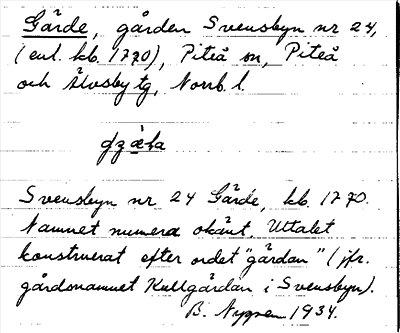 Gårde, gården Svensbyn nr 24,
(enl. kb. 1770), Piteå sn, Piteå
och Älvsby tg, Norrb. l.
Svensbyn nr 24 Gårde, kb. 1770.
Namnet numera okänt. Uttalet
konstruerat efter ordet "gårdan" (jfr.
gårdsnamnet Kullgårdan i Svensbyn).
B. Nygren 1934.